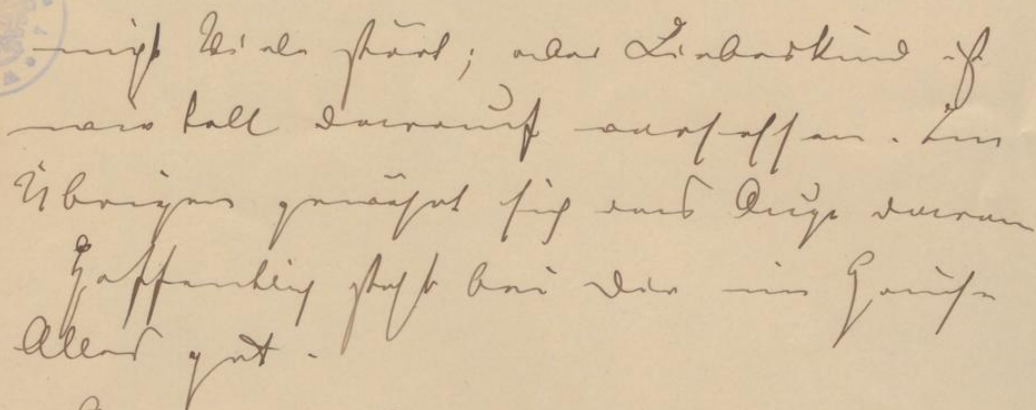 nicht Viele stört; aber Liebeskind ist
darauf versessen. Im
Übrigen gewöhnt sich das Auge daran
Hoffentlich steht bei Dir im Hause
Alles gut.